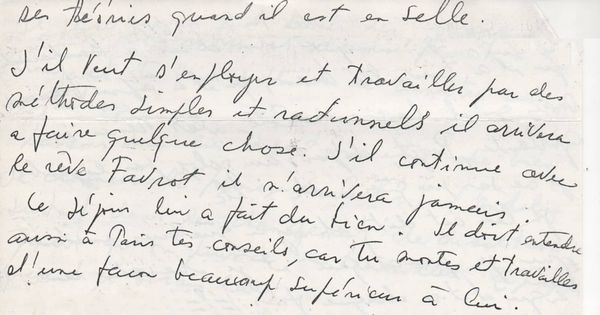 ses théories quand il est en selle.
S'il veut s'employer et travailler par des
méthodes simples et rationnels il arrivera
a faire quelque chose. S'il continue avec
le rêve Favrot il n'arrivera jamais.
Ce séjour lui a fait du bien. Il doit entendre
aussi à Paris tes conseils, car tu montes et travailles
d'une facon beaucoup supérieur à lui.